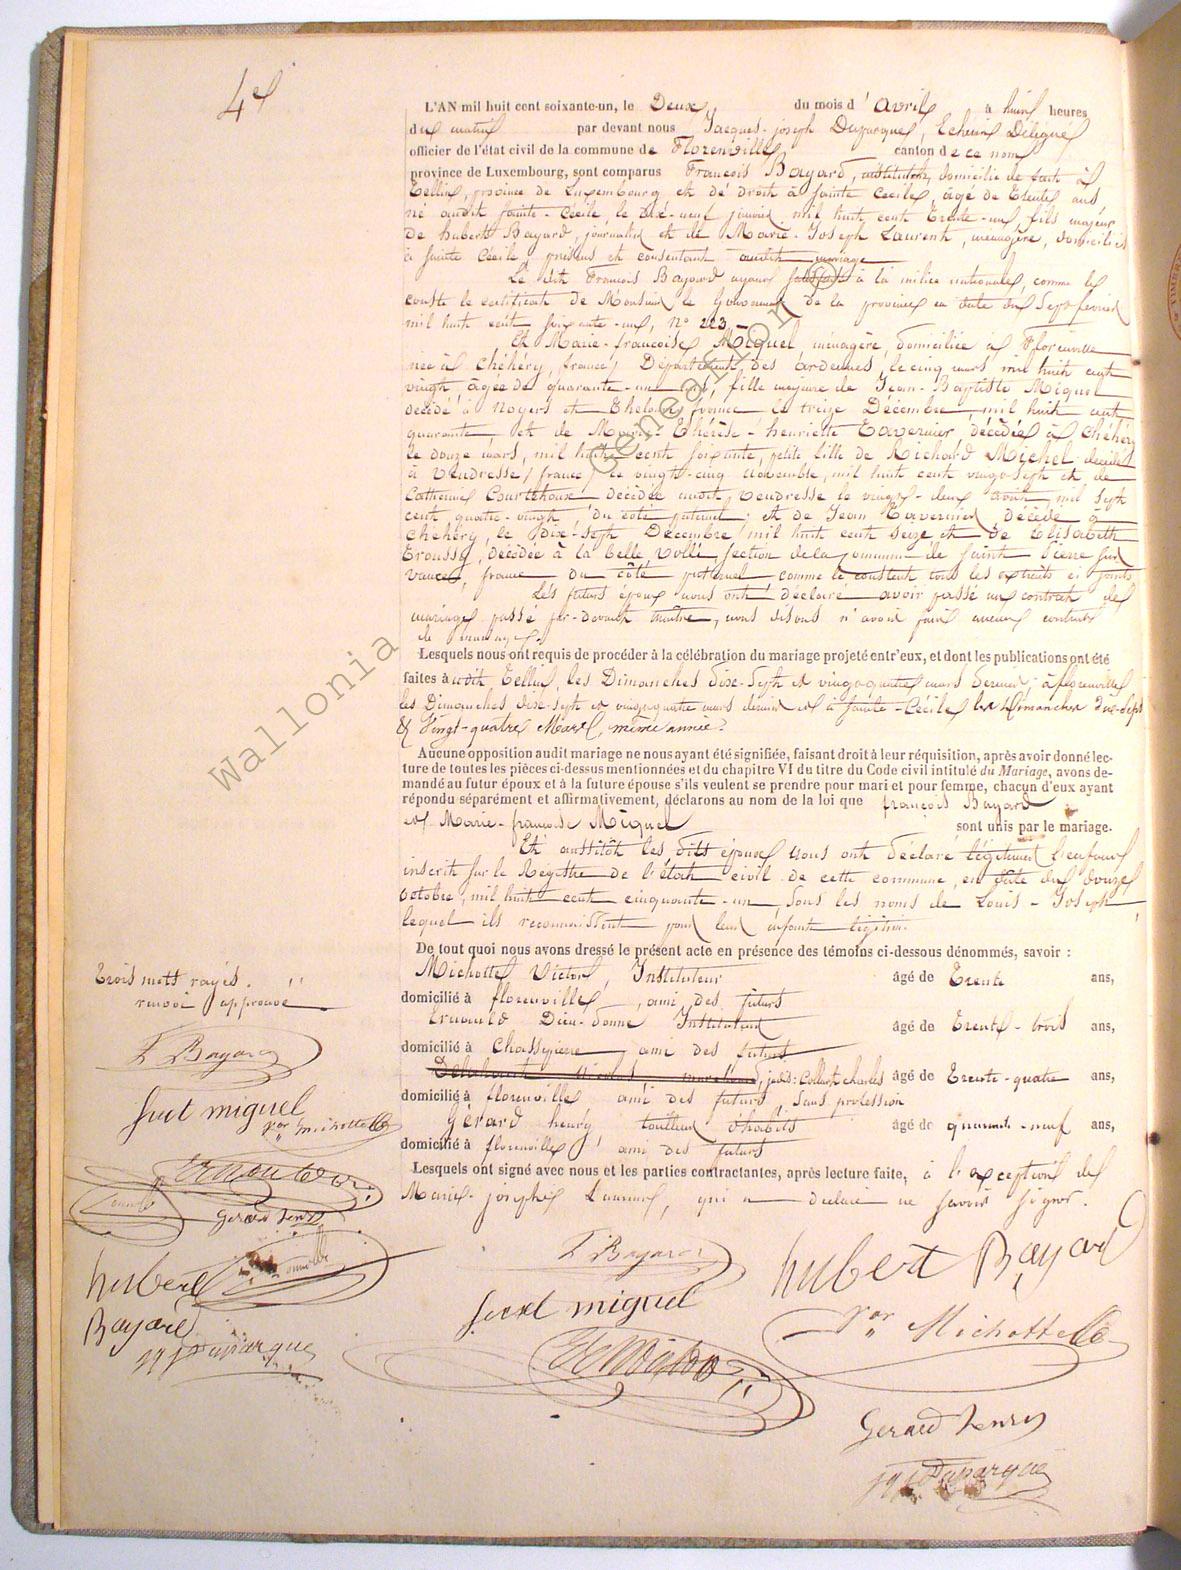 4e
L'AN mil huit cent soixante-un, le Deux du mois d'avril à huit heures
du matin par devant nous Jacques-joseph Duparque, Echevin Délégué
officier de l'état civil de la commune de Florenville canton de ce nom
province de Luxembourg, sont comparus François Bayard, instituteur, domicilié de fait à
Tellin, province de Luxembourg et de droit à Sainte Cecile, âgé de Trente ans
né audit Sainte-Cécile, le dix-neuf janvier mil huit cent Trente-un, fils majeur
de hubert Bayard, journalier et de Marie-Joseph Laurent, ménagère, domiciliés
à Sainte Cécile, présens et consentant audit mariage
Le dit François Bayard ayant satisfait à la milice nationale, comme le
conste le certificat de Monsieur le Gouverneur de la province en date du Sept février
mil huit cent soixante-un, n° 223
Et Marie-françoise Miguel ménagère, domiciliée à Florenville
née à Chéhéry, (france) Département des ardennes, le cinq mars mil huit cent
vingt, âgée de quarante-un ans, fille majeure de Jean-Baptiste Miguel
décédé à Noyers et Thelonne france le treize Décembre mil huit cent
quarante et de Marie Thérèse-henriette Tavernier, décédée à Chéhéry
le douze mars, mil huit cent soixante, petite fille de Richard Michel décédé
à Vendresse, france, le vingt-cinq novembre, mil huit cent vingt-sept et de
Catherine décédée audit, Vendresse le vingt-deux août mil sept
cent quatre-vingt du coté paternel; et de Jean Tavernier, décédé à
Chéhéry, le Dix-sept Décembre mil huit cent seize et de Elisabeth
Trousse, décédée à la Belle Volée, section de la commune de Saint Pierre Sur
Vance, france du côté maternel comme le constent tous les extraits ci joints
Les futurs époux nous ont déclaré avoir passé un contrat de
mariage passé par-devant maître, nous disons n'avoir fait aucun contrat
de mariage.
Lesquels nous ont requis de procéder à la célébration du mariage projeté entr'eux, et dont les publications ont été
faites à udit Tellin, les Dimanches dix-sept et vingt-quatre mars dernier à florenville
les Dimanches dix-sept et vingt-quatre mars dernier et à Sainte-Cécile les Dimanches Dix-sept
& Vingt-quatre Mars, même année.
Aucune opposition audit mariage ne nous ayant été signifiée, faisant droit à leur réquisition, après avoir donné lec-
ture de toutes les pièces ci-dessus mentionnées et du chapitre VI du titre du Code civil intitulé du Mariage, avons de-
mandé au futur époux et à la future épouse s'ils veulent se prendre pour mari et pour femme, chacun d'eux ayant
répondu séparément et affirmativement, déclarons au nom de la loi que françois Bayard
et Marie-françoise Miguel sont unis par le mariage.
Et aussitôt les dits époux nous ont déclaré légitimer l'enfant
inscrit sur le Registre de l'état civil de cette commune, en date du douze
octobre, mil huit cent cinquante-un, sous les noms de Louis-Joseph
lequel ils reconnaissent pour leur enfant légitime.
De tout quoi nous avons dressé le présent acte en présence des témoins ci-dessous dénommés, savoir :
Michotte Victor, Instituteur âgé de Trente ans,
domicilié à florenville, ami des futurs
Dieu-donné Instituteur âgé de Trente-trois ans,
domicilié à Chassepierre ami des futurs
Collart charles âgé de Trente-quatre ans,
domicilié à florenville ami des futurs, sans profession
Gérard henry tailleur d'habits âgé de quarante-neuf ans,
domicilié à florenville ami des futurs
Lesquels ont signé avec nous et les parties contractantes, après lecture faite, à l'exception de
Marie-josephe Laurent, qui a déclaré ne savoir signer.
Trois mots rayés.
renvoi approuvé
F Bayard
Miguel
Vor Michotte
Gerard henry
hubert
Bayard
Duparque
F Bayard
hubert Bayard
Miguel
Vor Michotte
Gerard henry
Duparque
Wallonia Genealogie